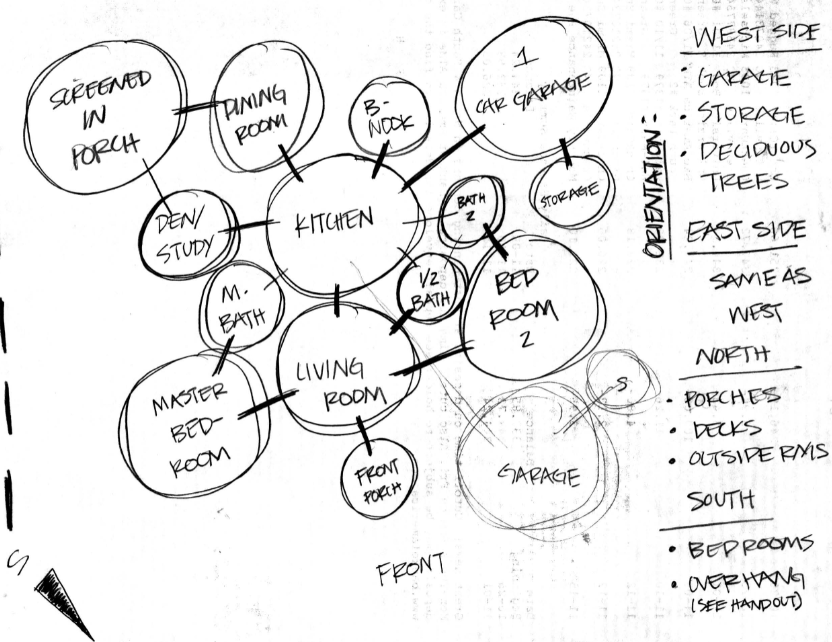 SCREENED
IN
PORCH
DINING
ROOM
B-
NOOK
1
CAR GARAGE
STORAGE
DEN/
STUDY
KITCHEN
BATH
2
M.
BATH
1/2
BATH
BED
ROOM
2
MASTER
BED-
ROOM
LIVING
ROOM
FRONT
PORCH
S
GARAGE
FRONT
S
ORIENTATION:
WEST SIDE
• GARAGE
• STORAGE
• DECIDUOUS
TREES
EAST SIDE
SAME AS
WEST
NORTH
• PORCHES
• DECKS
• OUTSIDE RMS
SOUTH
• BEDROOMS
• OVERHANG
(SEE HANDOUT)